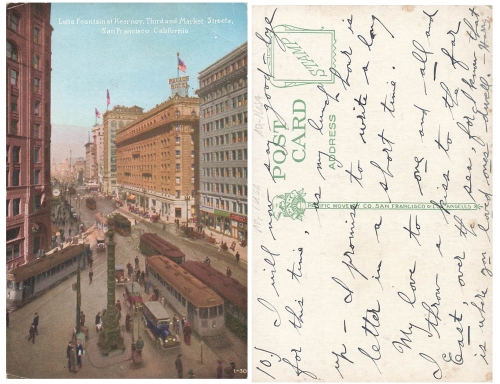 Lotta Fountain at Kearney, Third and Market Streets,
San Francisco, California
PALACE
HOTEL
1-30
STAMP
POST CARD
ADDRESS
PACIFIC NOVELTY CO. SAN FRANCISCO & LOS ANGELES
10) I will now say good-bye
for this time, as my lunch hour is
up - I promise to write a long
letter in a short time.
My love to one and all and
I throw a kiss to the far
East, over the sea, for I know that
is where you loved ones dwell. -